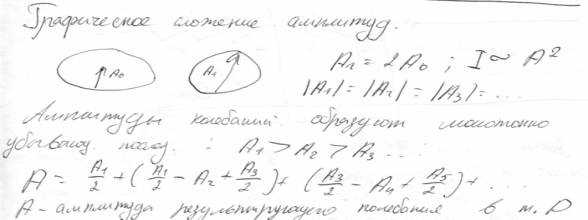 Графическое сложение амплитуд.
A₀ A₁ A₁ = 2A₀ ; I ~ A²
|A₁| = |A₂| = |A₃| = ...
Амплитуды колебаний образуют монотонно
убывающ. послед. : A₁ > A₂ > A₃ ...
A = A₁/2 + (A₁/2 - A₂ + A₃/2) + (A₃/2 - A₄ + A₅/2) + ...
A - амплитуда результирующего колебания в т. P